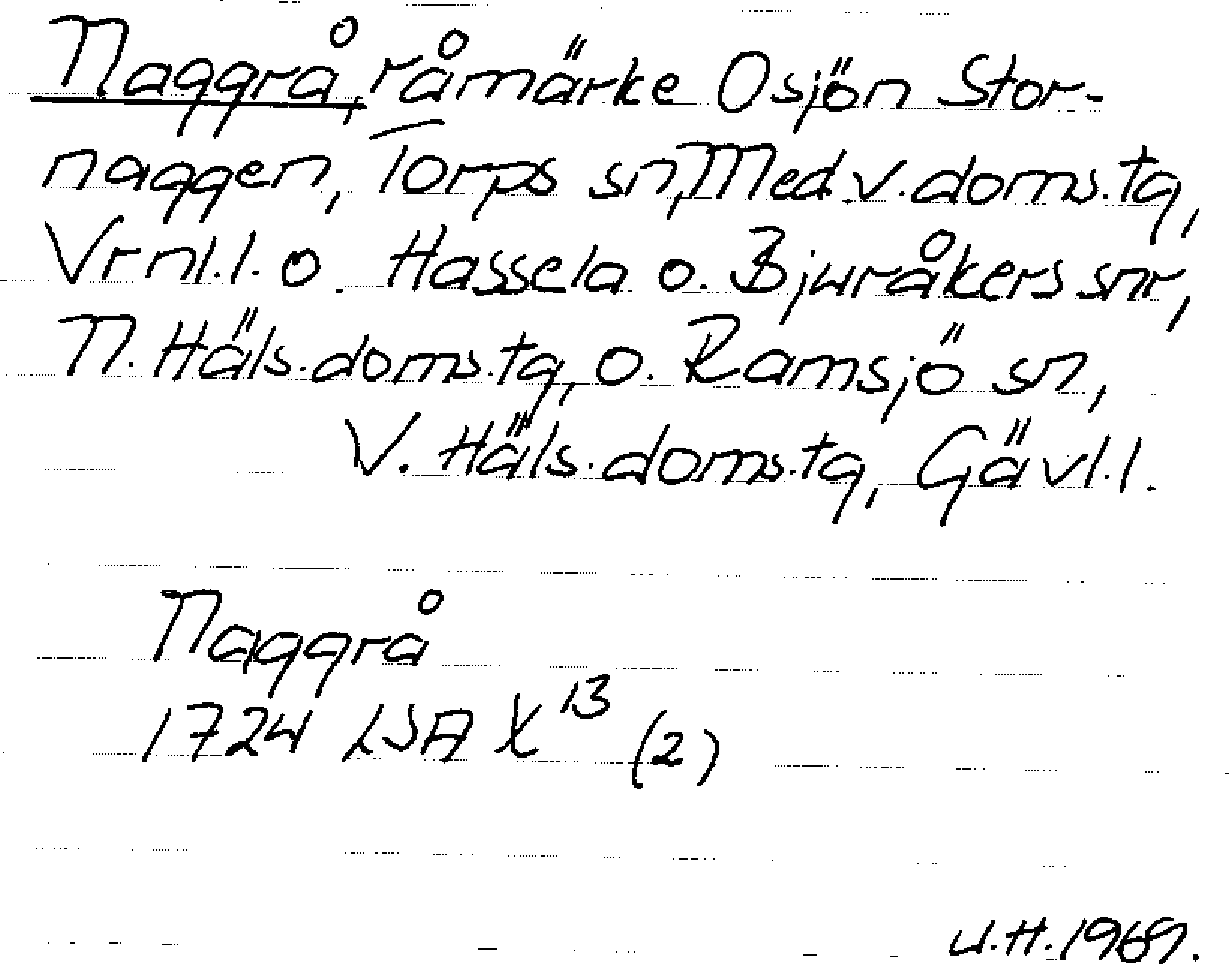 Naggrå, råmärke Osjön Stor-
naggen, Torps sn, Med.v.doms.tg,
Vrnl.l. o. Hassela o. Bjuråkers snr,
N. Häls.doms.tg, o. Ramsjö sn,
V. Häls.doms.tg, Gävl.l.
Naggrå
1724 LSA X 13 (2)
U.H.